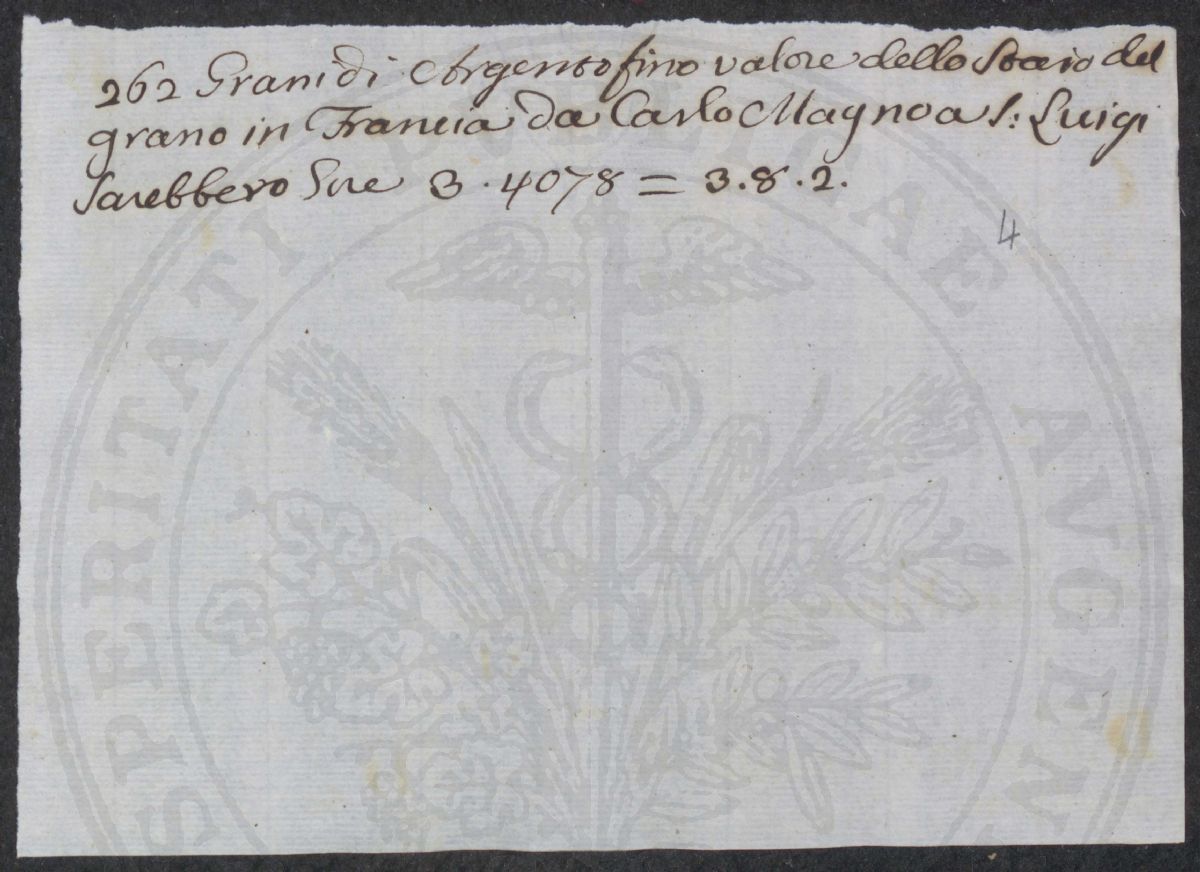 262 Grani di Argento fino valore dello Staio del
grano in Francia da Carlo Magno a S: Luigi
Sarebbero Lire 3.4078 = 3.8.2.
4
SPERITATI PVBLICAE AVGEN